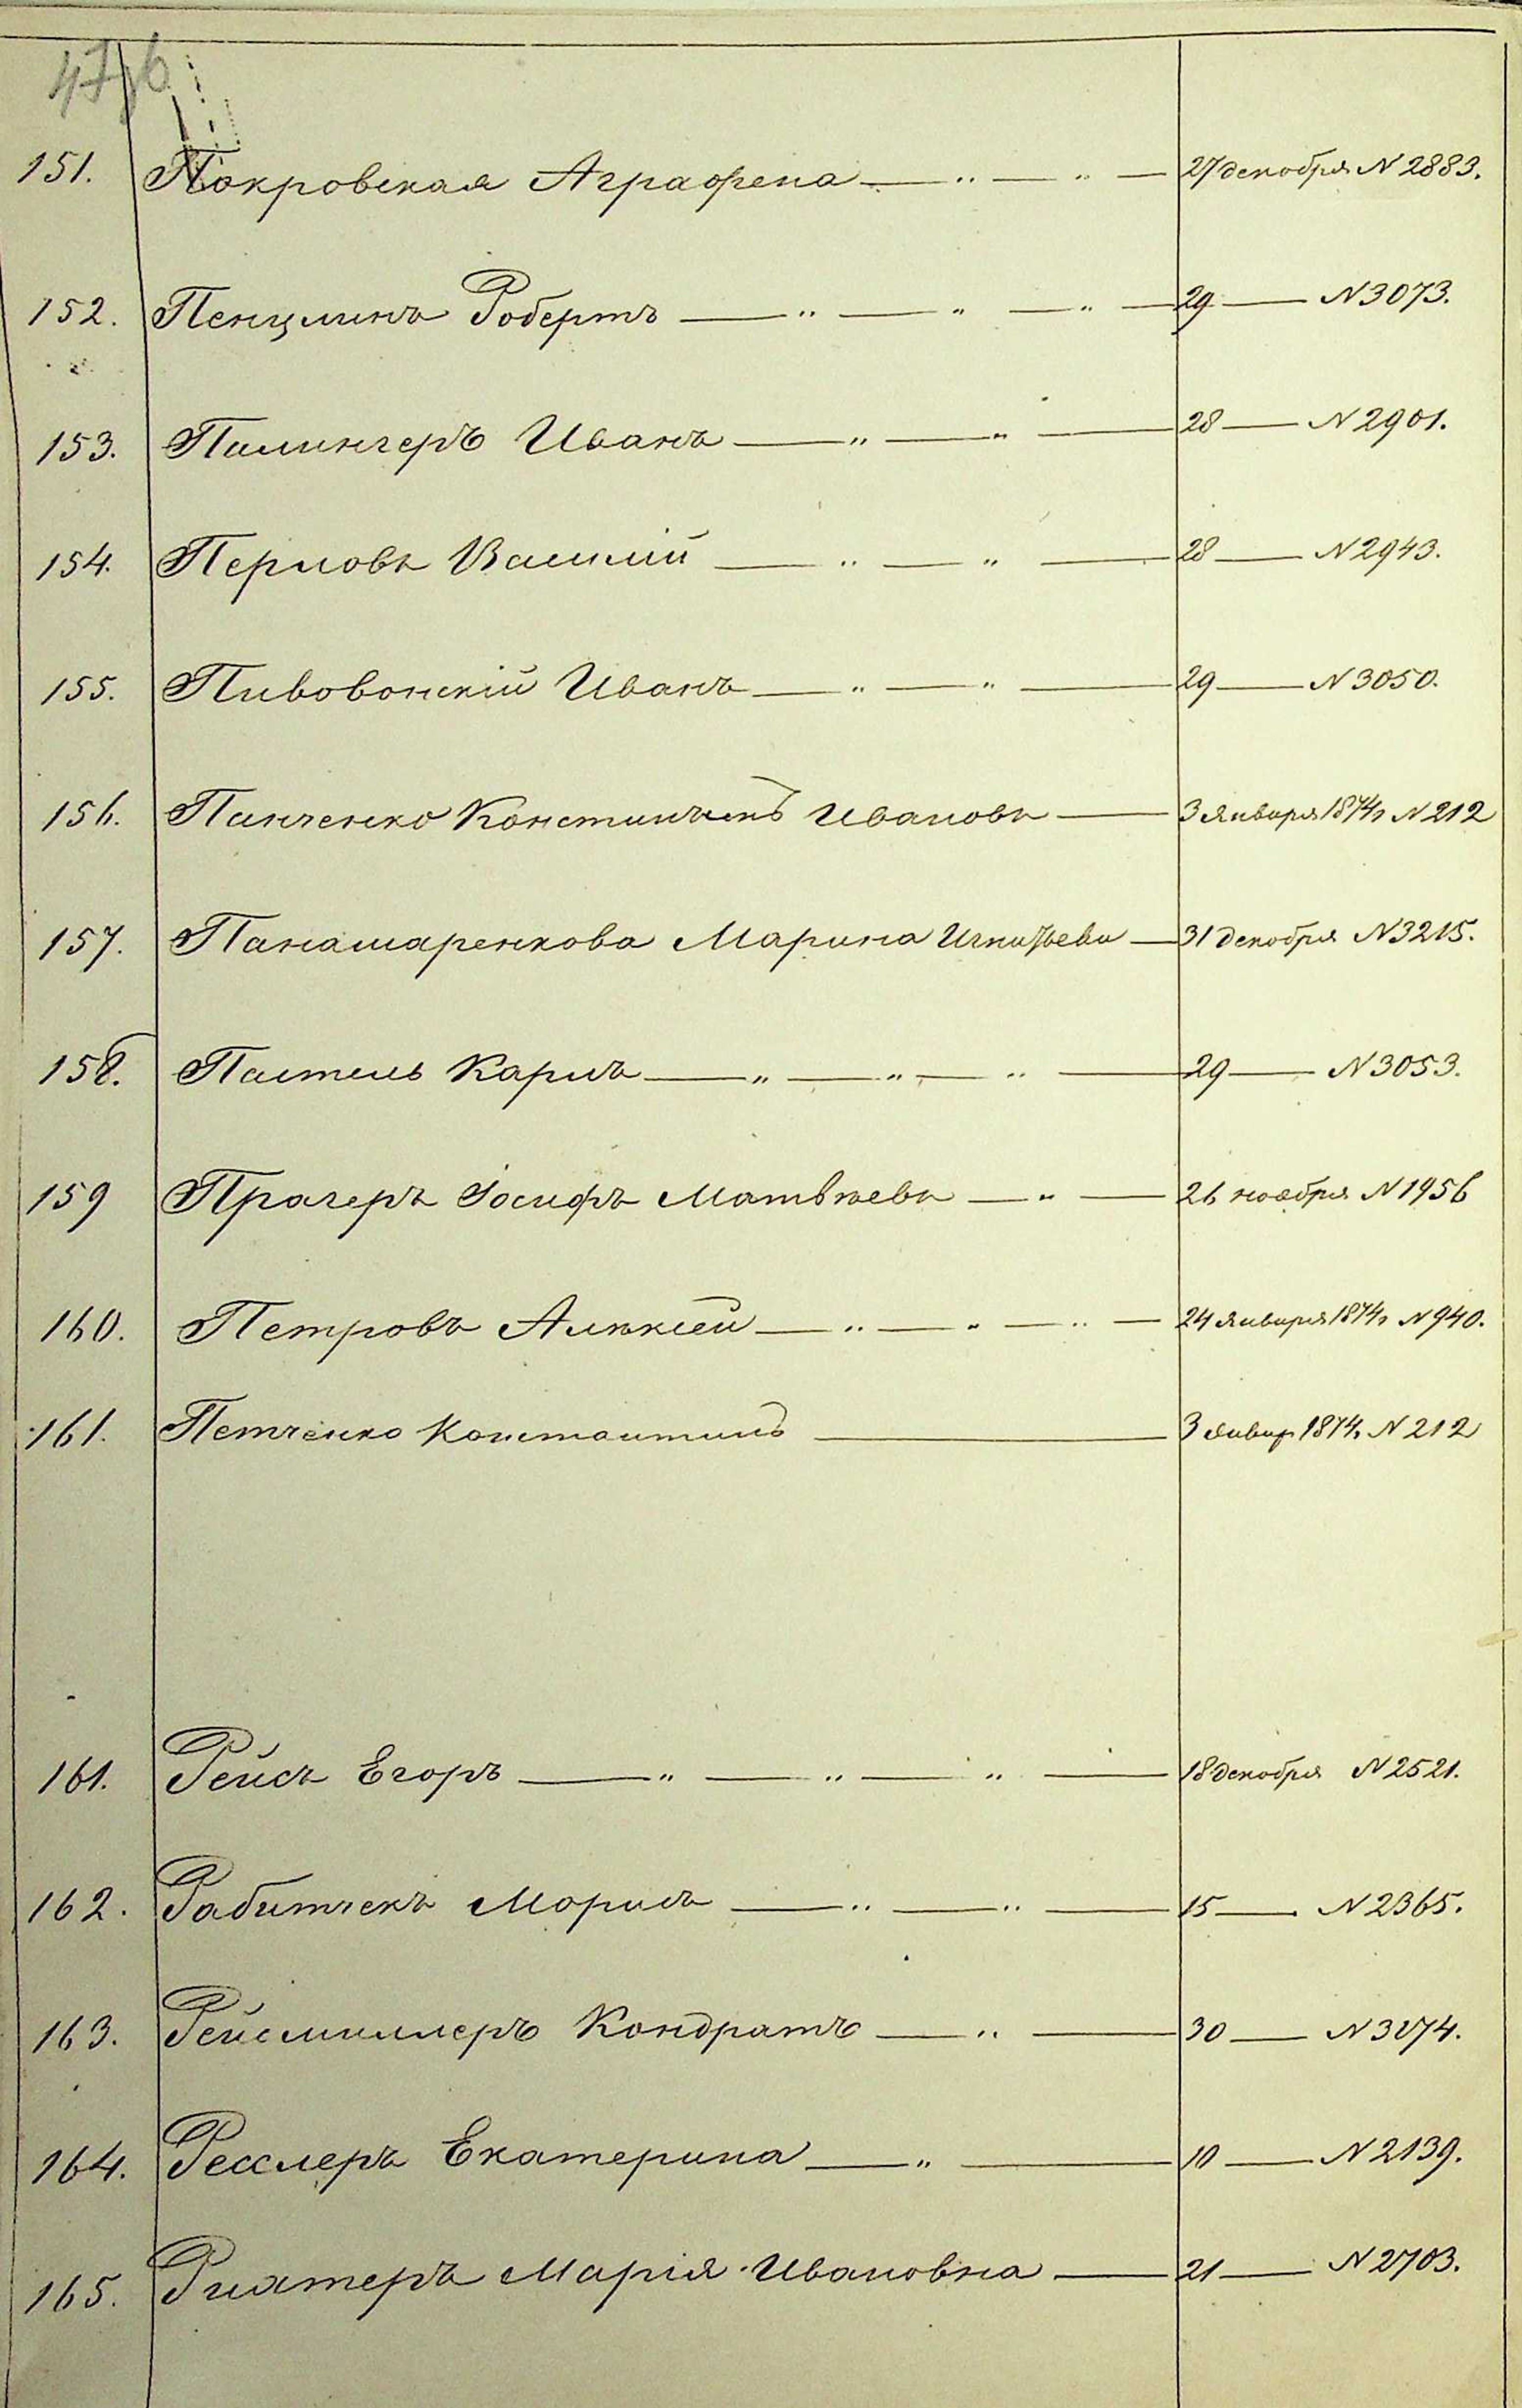 47об
151. Покровская Аграфена — " — " — 27 декабря N 2883.
152. Пенцлинъ Робертъ — " — " — " — 29 — N 3073.
153. Палингеръ Иванъ — " — " — 28 — N 2901.
154. Перловъ Василій — " — " — 28 — N 2943.
155. Пивовонскій Иванъ — " — " — 29 — N 3050.
156. Панченко Константинъ Ивановъ — 3 Января 1874 г N 212
157. Панамаренкова Марина Игнатьева — 31 декабря N 3215.
158. Пастель Карлъ — " — " — " — 29 — N 3053.
159 Прагеръ Іосифъ Матвѣевъ — " — 26 ноября N 1956
160. Петровъ Алексѣй — " — " — " — 24 Января 1874 г N 940.
161. Петченко Константинъ — 3 Январ 1874. N 212
161. Рейсъ Егоръ — " — " — " — 18 декабря N 2521.
162. Рабитчекъ Морисъ — " — " — 15 — N 2365.
163. Рейсмиллеръ Кондратъ — " — 30 — N 3174.
164. Ресслеръ Екатерина — " — 10 — N 2139.
165. Рихтеръ Марія Ивановна — 21 — N 2703.